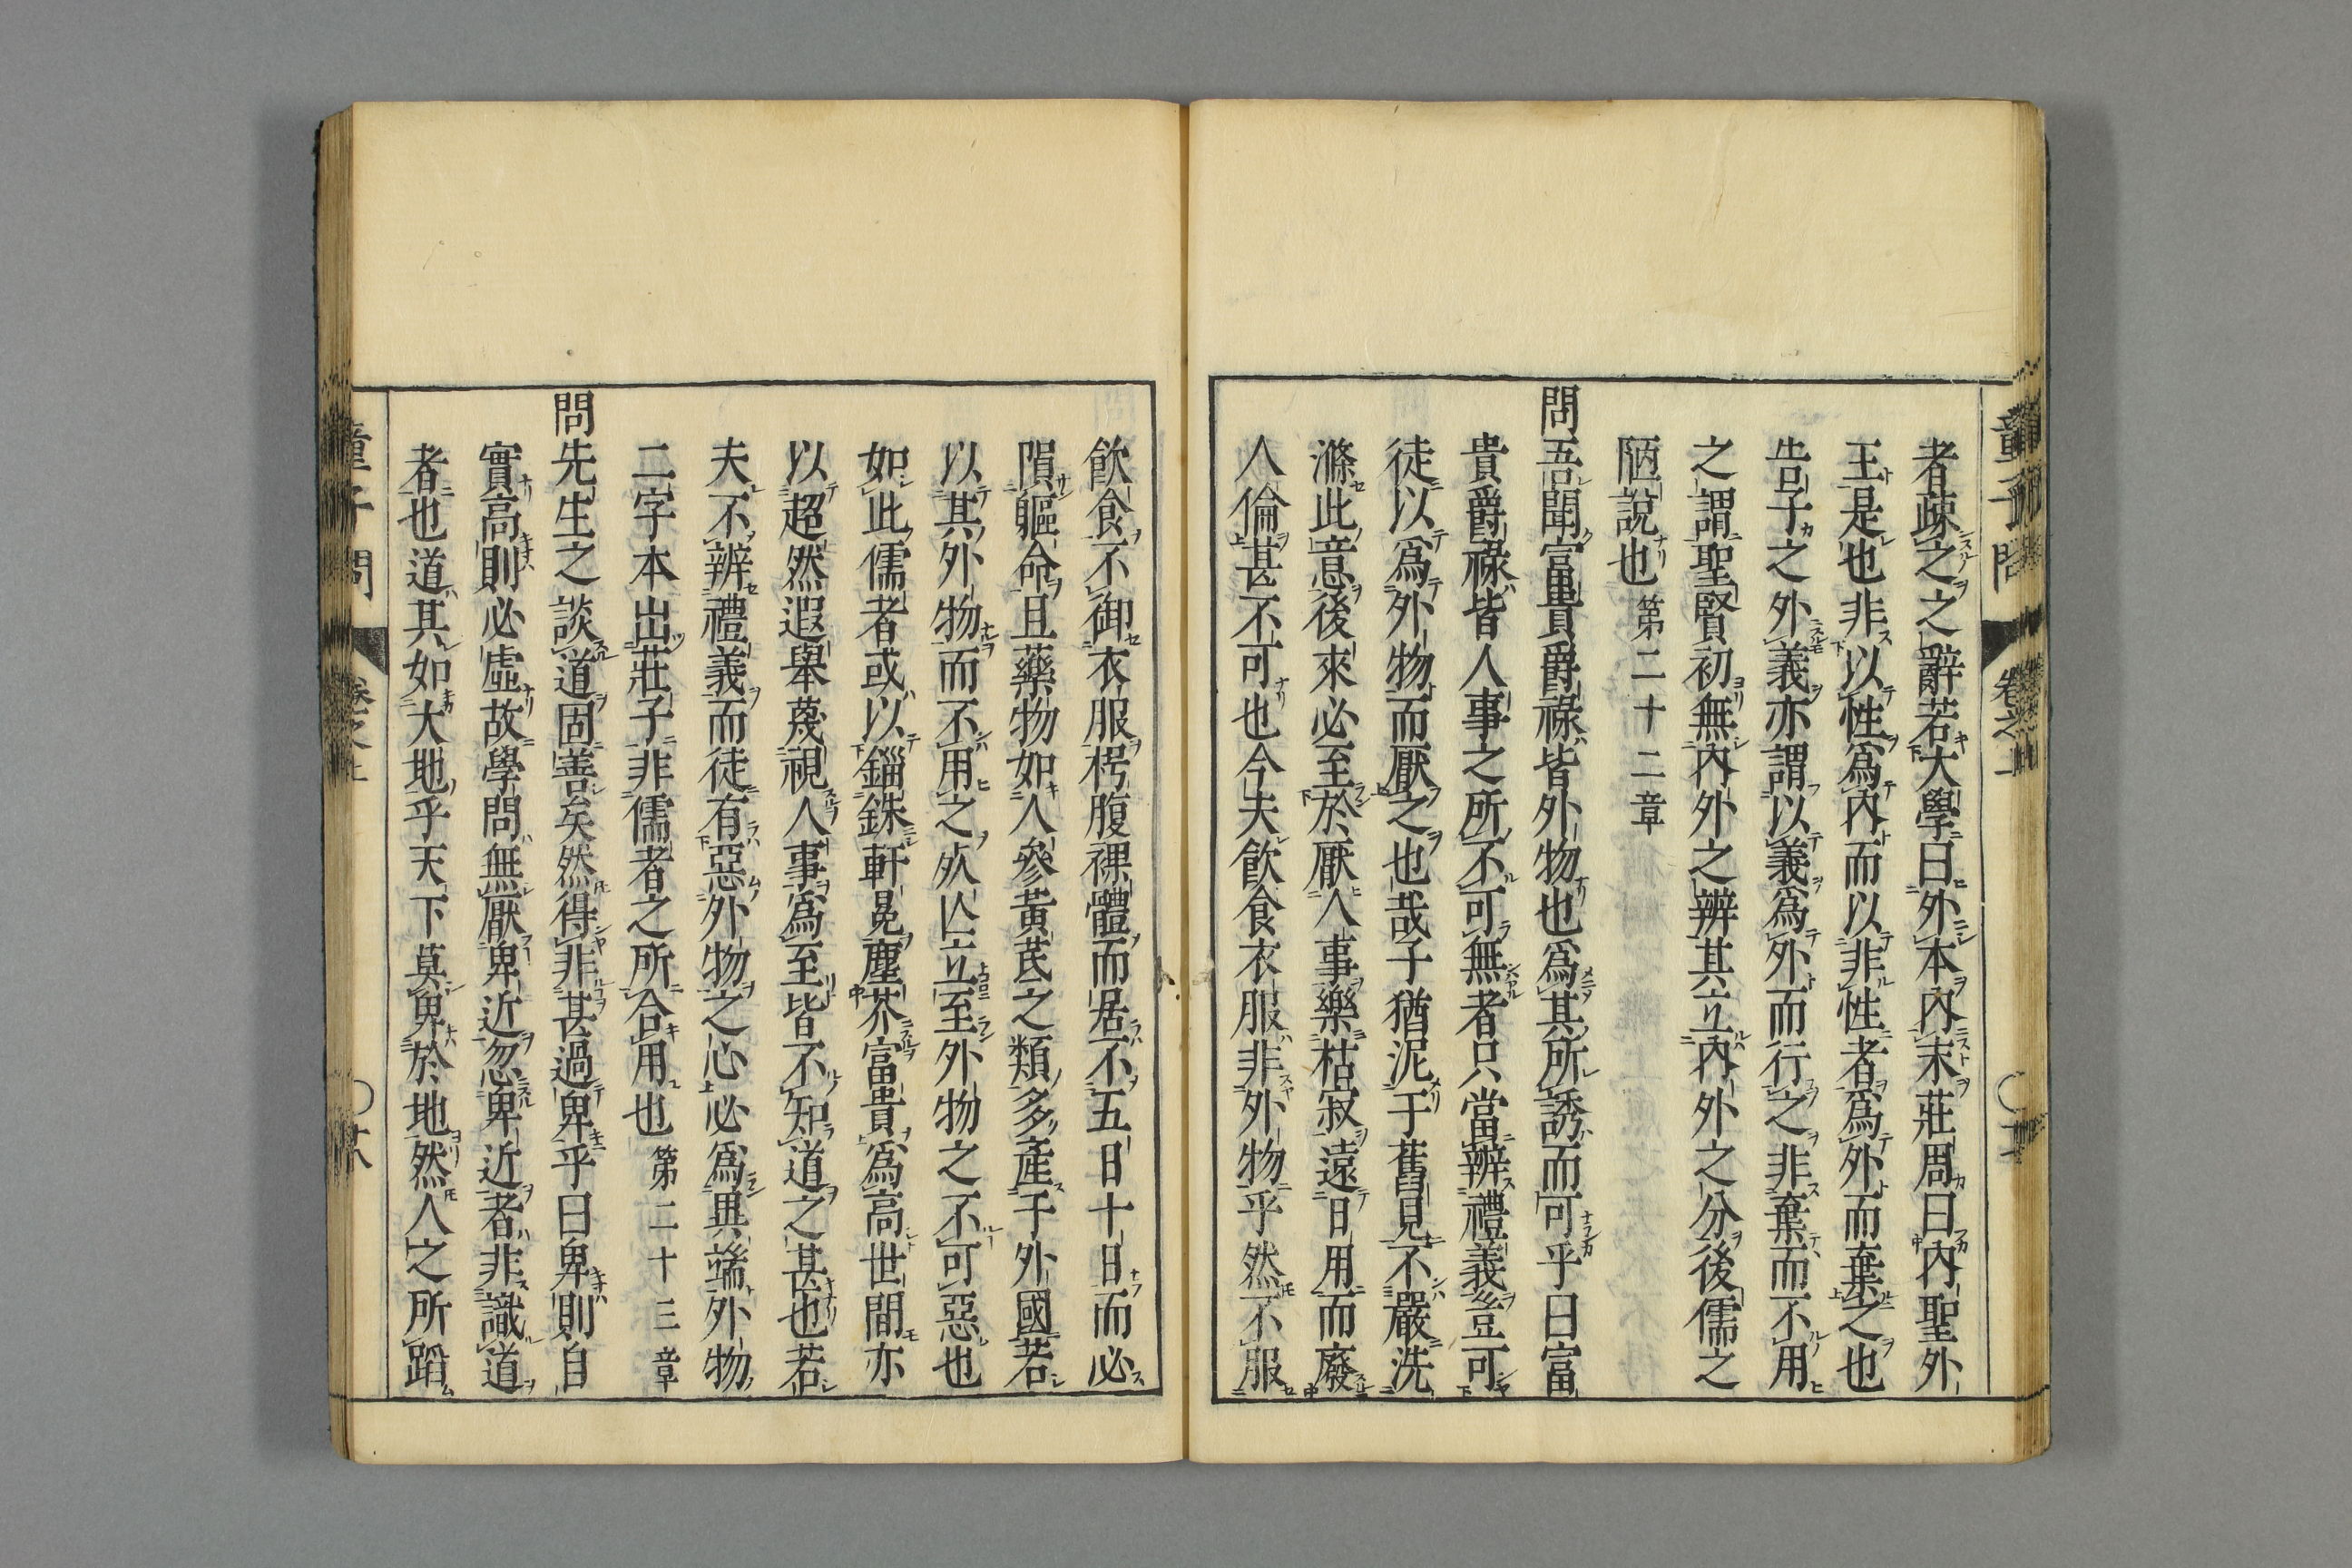 者疎之之辭若大學曰外本內末莊周曰內聖外
王是也非以性爲內而以非性者爲外而棄之也
告子之外義亦謂以義爲外而行之非棄而不用
之謂聖賢初無內外之辨其立內外之分後儒之
陋說也 第二十二章
問吾聞富貴爵祿皆外物也爲其所誘而可乎曰富
貴爵祿皆人事之所不可無者只當辨禮義豈可
徒以爲外物而厭之也哉子猶泥于舊見不嚴洗
滌此意後來必至於厭人事樂枯寂遠日用而廢
人倫甚不可也今夫飲食衣服非外物乎然不服
飲食不御衣服枵腹裸體而居不五日十日而必
隕軀命且藥物如人參黃芪之類多產于外國若
以其外物而不用之必立至外物之不可惡也
如此儒者或以錙銖軒冕塵芥富貴爲高世間亦
以超然遐舉蔑視人事爲至皆不知道之甚也若
夫不辨禮義而徒有惡外物之心必爲異端外物
二字本出莊子非儒者之所合用也 第二十三章
問先生之談道固善矣然得非甚過卑乎曰卑則自
實高則必虛故學問無厭卑近忽卑近者非識道
者也道其如大地乎天下莫卑於地然人之所蹈
童子問 卷之上